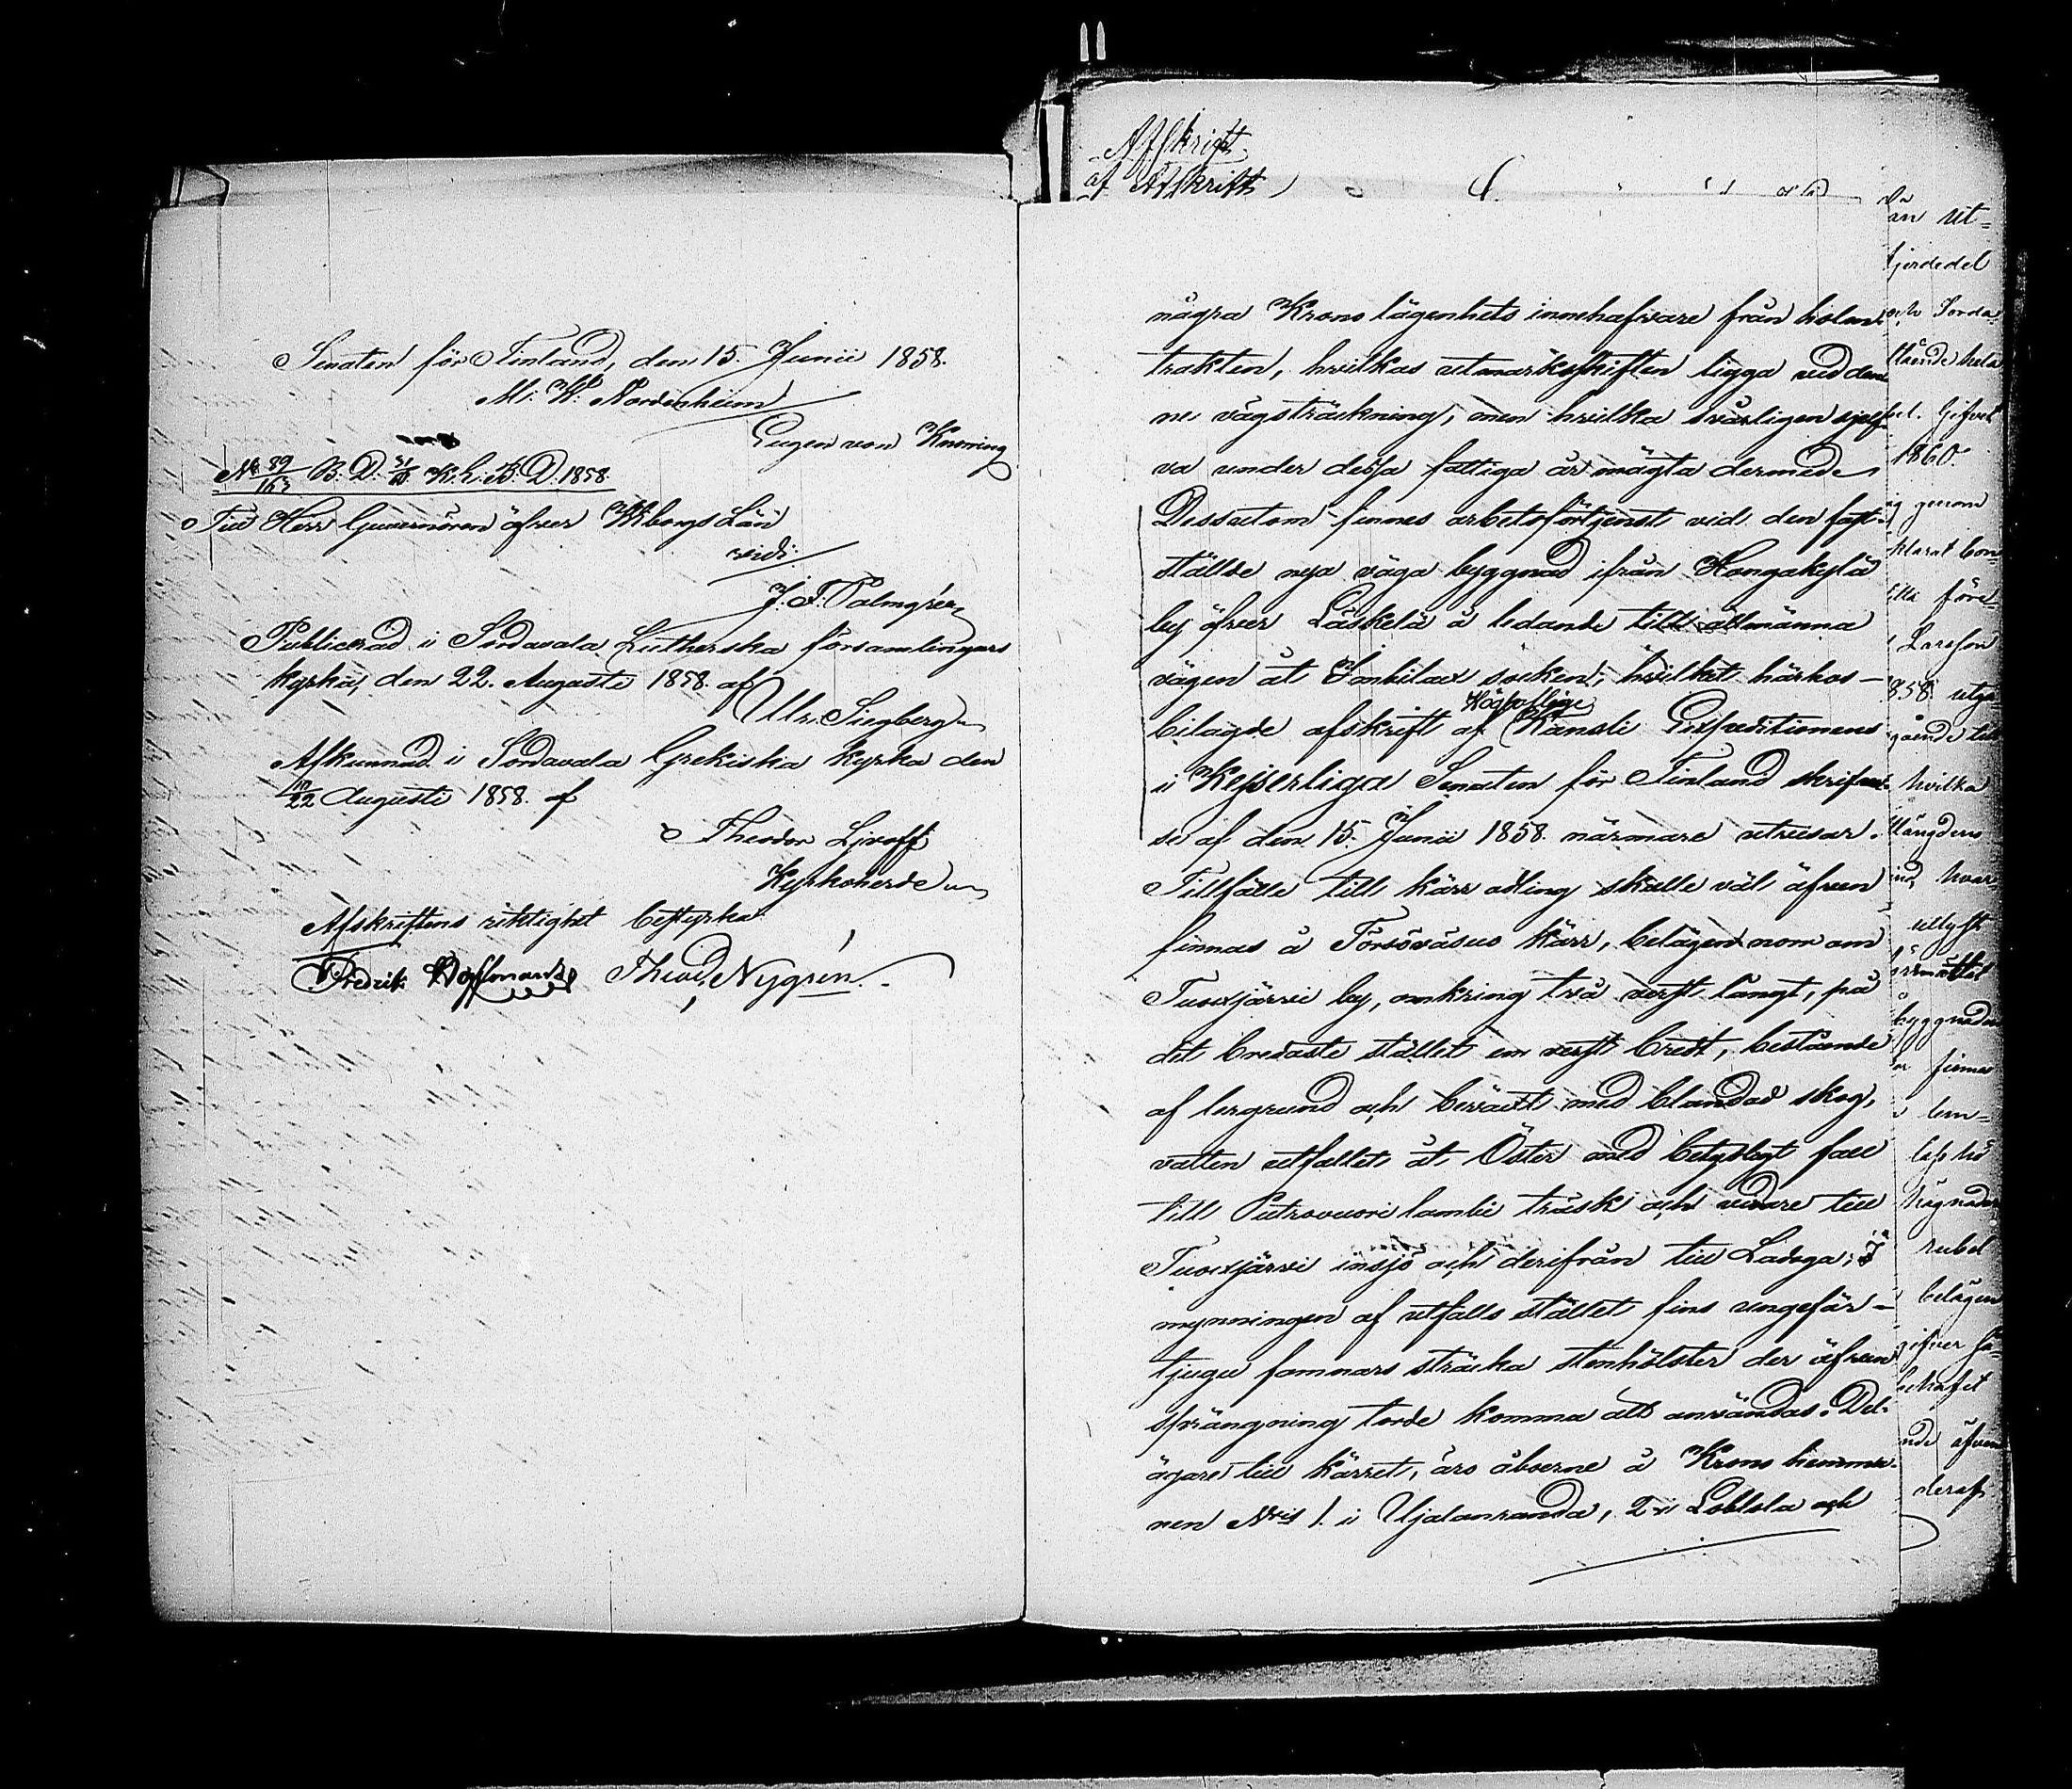 Senaten för Finland, den 15. Junii 1858.
M. W. Nordenheim
Eugen von Knorring
N: 89/163 B. D. 31/10 K. E. B. D. 1858.
Till Herr Guvernören öfver Wiborgs Län
vidi:
J. F. Palmgren
Publicerad i Sordavala Lutherska församlingars
kyrka, den 22. Augusti 1858. af
Ulr. Siegberg
Afkunnad i Sordavala Grekiska kyrka den
10/22 Augusti 1858. af
Theodor Ljvoff
Kyrkoherde
Afskriftens riktighet bestyrka
Fredrik Hoffmann Theod. Nygrén.
Afskrift
af Afskrift
några Krono lägenhets innehafvare från holm
trakten, hvilkas utmarksskiften ligga vid den-
ne vägsträckning, men hvilka svårligen sjelf-
va under dessa fattiga år mägta dermed
Dessutom finnes arbetsförtjenst vid den fast-
ställde nya väga byggnad ifrån Hongakylä
by öfver Läskelä å ledande till allmänna
vägen åt Imbilax socken; hvilket härhos-
Högloflige
bilagde afskrift af Kansli Expeditionens
i Kejserliga Senaten för Finland skrifvel-
se af den 15. Junii 1858 närmare utvisar.
Tillfälle till kärr odling skulle väl äfven
finnas å Torsövāsuo kärr, belägen nom om
Tuoxjärvi by, omkring två verst långt, på
det bredaste stället en verst bredt, bestående
af lergrund och beväxt med blandad skog,
vatten utfallet åt Öster med betydligt fall
till Putrovuori lambi träsk och vidare till
Tuoxjärvi insjö och derifrån till Ladoga; I
mynningen af utfalls stället fins ungefär-
tjugu famnars sträcka stenhölster der äfven
sprängning torde komma att användas. Del-
ägare till kärret, äro åboerne å Krono hemma-
nen Nris 1. i Ujalanranda, 2 i Loblola och
än ut-
fjerdedel
och Sorda
stående hela
el. Gifvet
1860.
genom
klarat bon
före-
Larsson
858 utgå
gående till
hvilka
längdens
hvar
utlyst
byggnaden
finnas
lem-
hägnaden
rubel
belägen
gifver
behafet
nde äfven
deraf